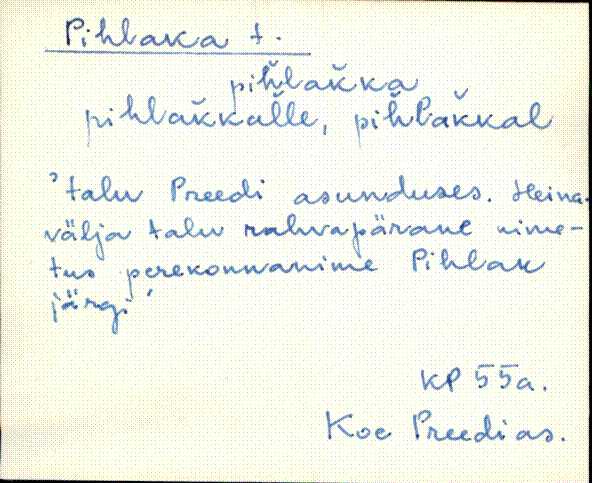 Pihlaka t.
pihlak̆ka
pihlak̆kal̆le, pihlak̆kal
'talu Preedi asunduses. Heina-
välja talu rahvapärane nime-
tus perekonnanime Pihlak
järgi'
KP 55a.
Koe Preedi as.